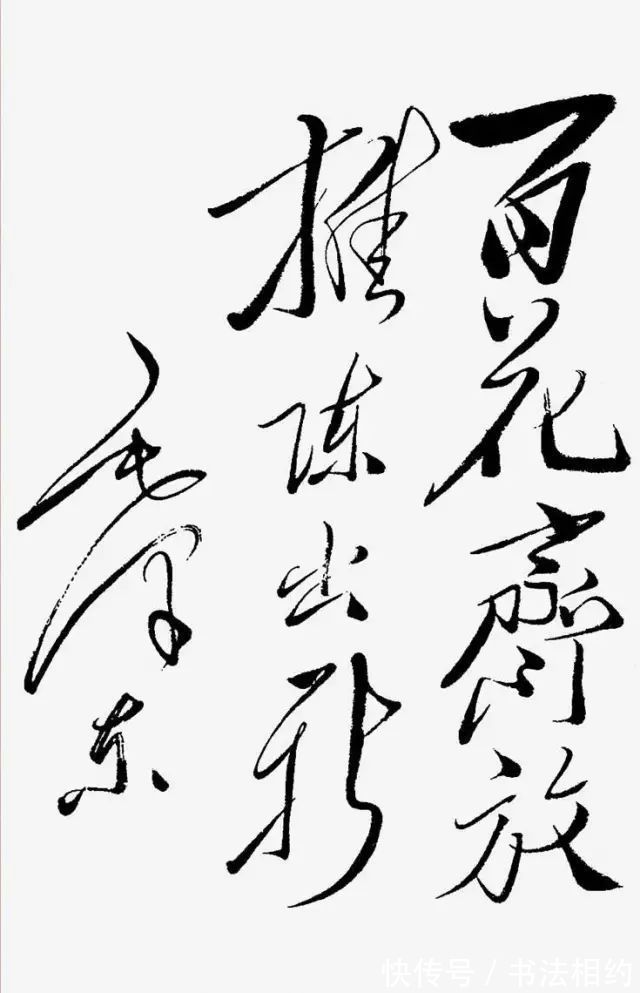 百花齊放
推陈出新
毛泽东
快传号/书法相约